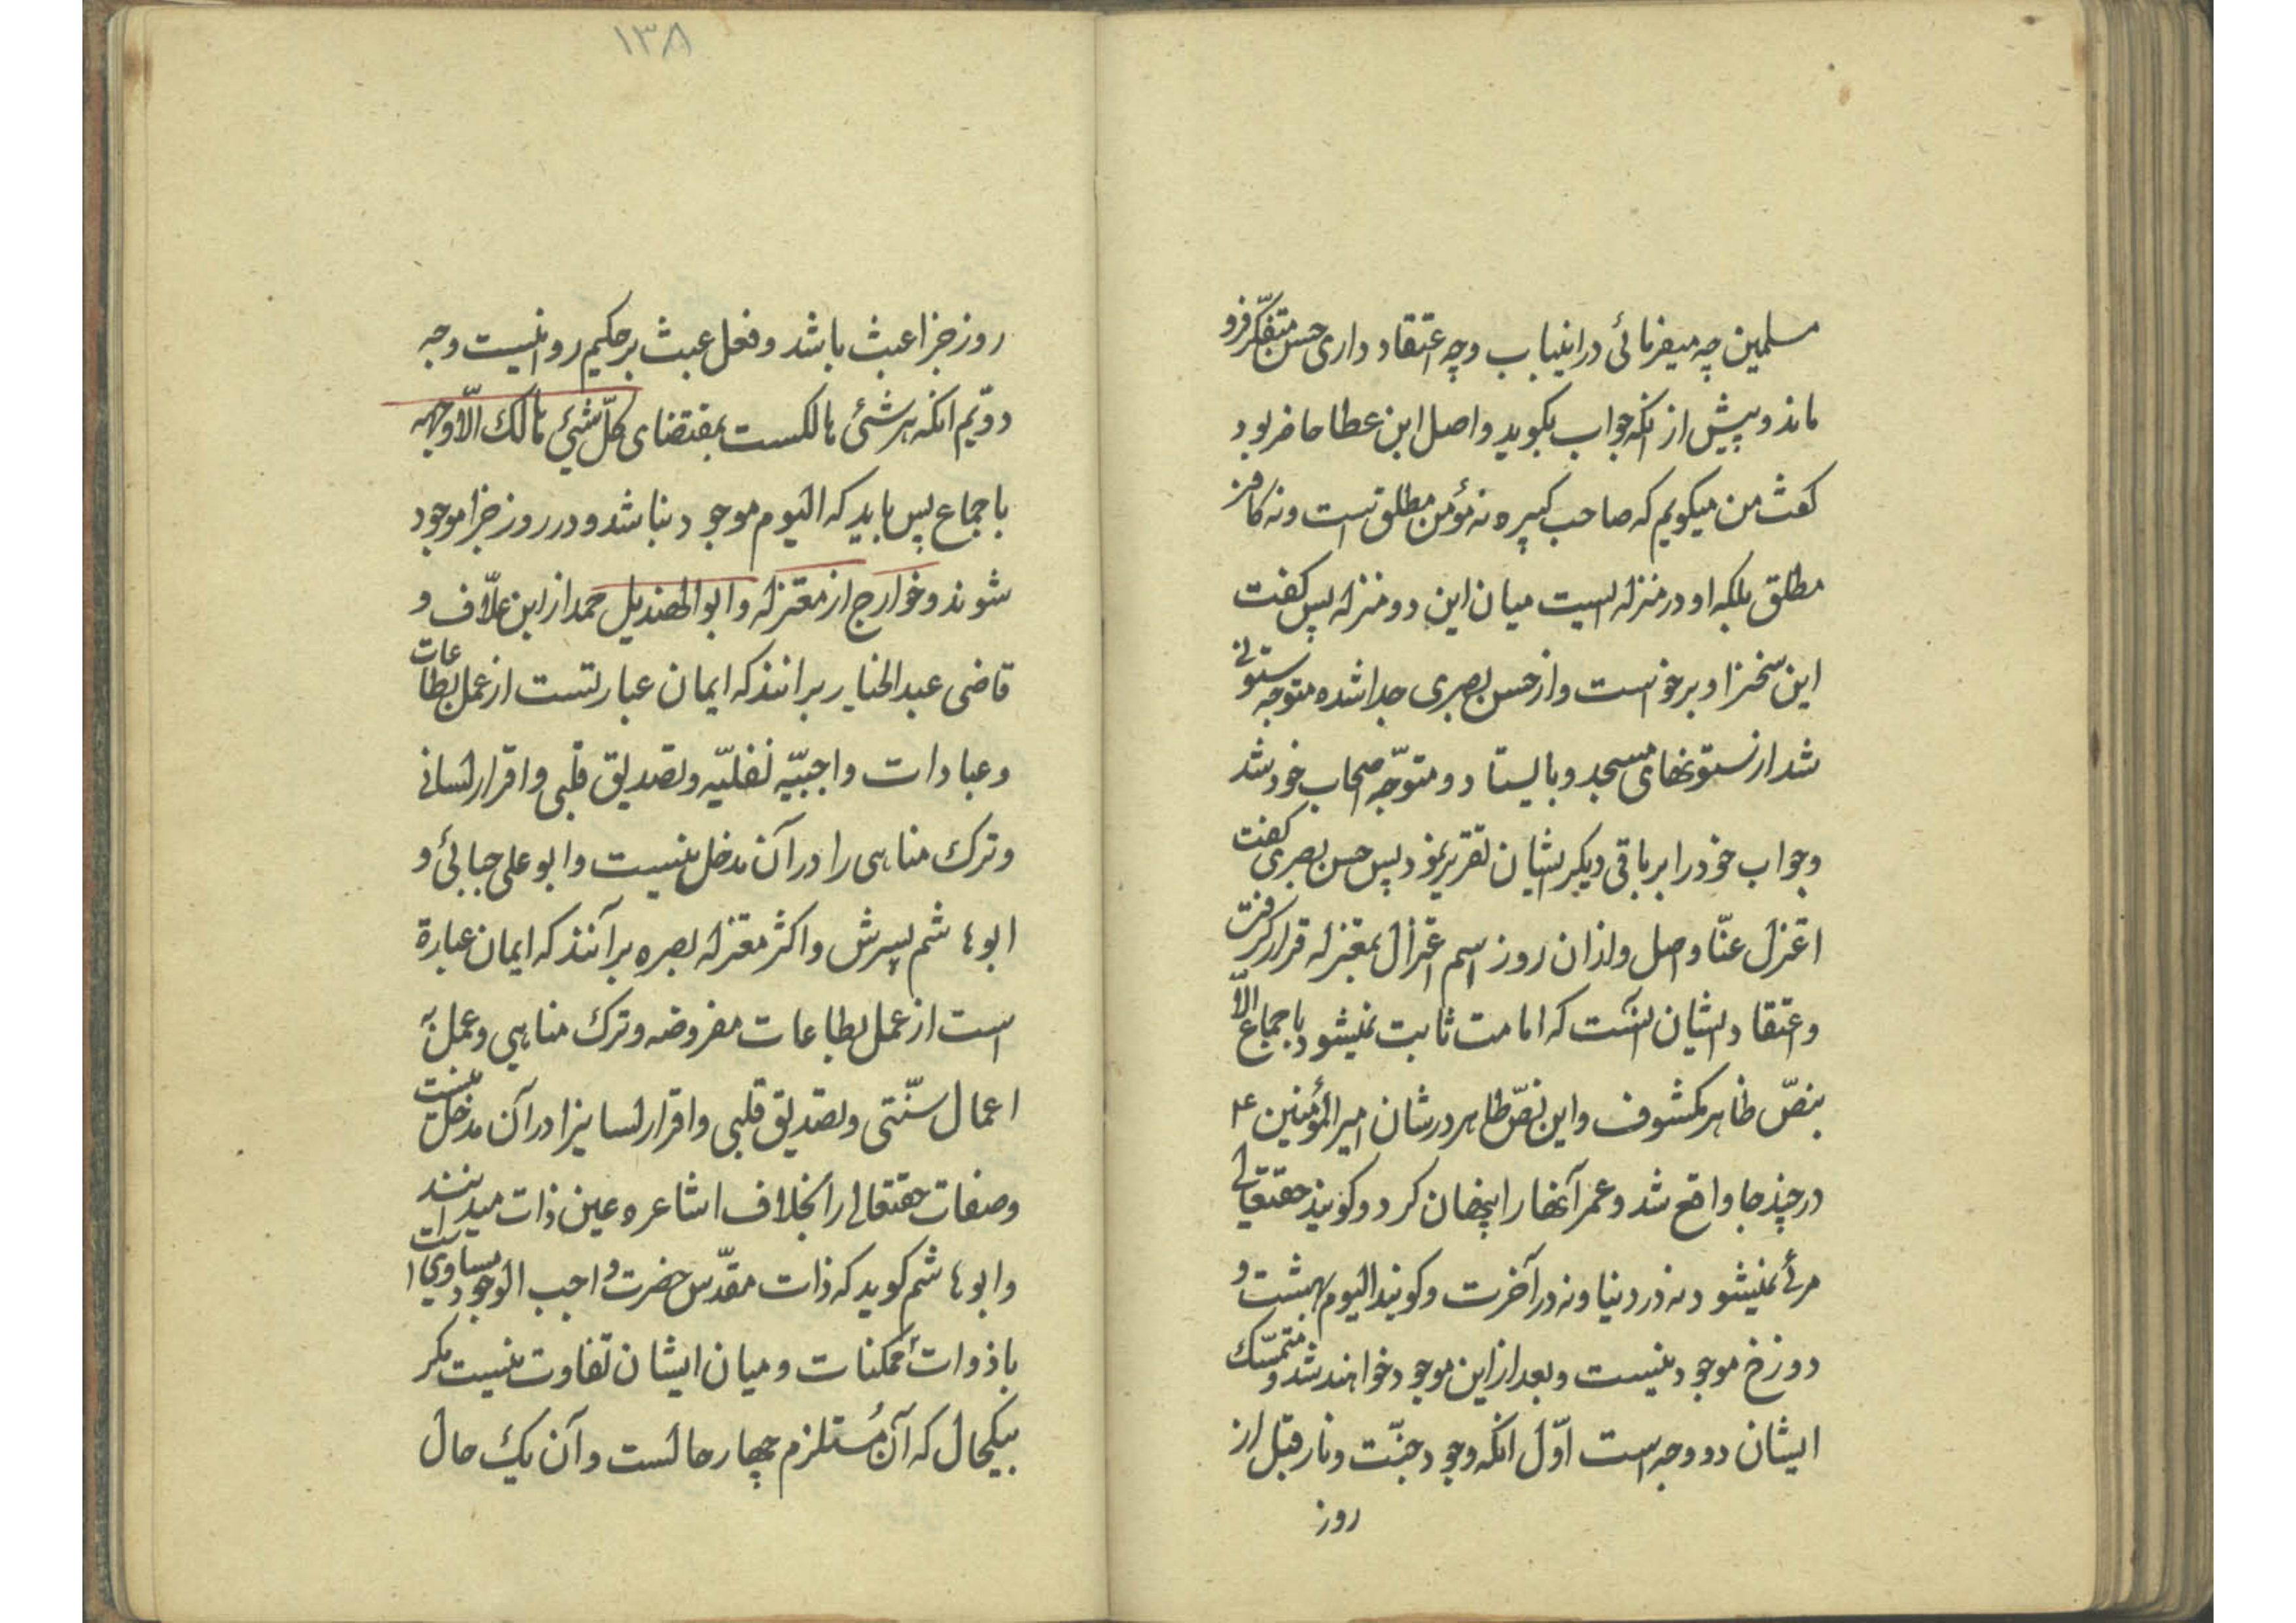 مسلمین چه میفرمائی دراینباب وچه اعتقاد داری حسن متفکّر فرو
ماند و پیش از انکه جواب بگوید واصل ابن عطا حاضر بود
کفت من میکویم که صاحب کبیره نه مؤمن مطلق است ونه کافر
مطلق بلکه او در منزله ایست میان این دو منزله پس کفت
این سخنرا و برخواست واز حسن بصری جدا شده متوجه ستونی
شد از ستونهای مسجد و بایستاد و متوّجه اصحاب خود شد
وجواب خود را بر باقی دیکر ایشان تقریر نمود پس حسن بصری کفت
اعتزل عنّا واصل واز ان روز اسم اعتزال بمعتزله قرار کرفت
واعتقاد ایشان انست که امامت ثابت نمیشود باجماع الّا
بنصّ ظاهر مکشوف واین نصّ ظاهر در شان امیرالمؤمنین ع
در چند جا واقع شد وعمر آنها را پنهان کرد وکویند حقتعالی
مرئی نمیشود نه در دنیا ونه در آخرت وکویند الیوم بهشت و
دوزخ موجود نیست وبعد از این موجود خواهند شد و متمسّک
ایشان دو وجه است اوّل انکه وجود جنّت ونار قبل از
روز
۱۳۸
روز جزا عبث باشد وفعل عبث بر حکیم روا نیست وجه
دویّم انکه هر شئی هالکست بمقتضای کلّ شئ هالک الّا وجهه
باجماع پس باید که الیوم موجود نباشد ودر روز جزا موجود
شوند وخوارج از معتزله وابوالهذیل حمدان ابن علّاف و
قاضی عبدالجبار برانند که ایمان عبارتست از عمل بطاعات
وعبادات واجبیّه نفلیّه وتصدیق قلبی واقرار لسانی
وترک مناهی را در آن مدخل نیست وابو علی جبائی و
ابوهاشم پسرش واکثر معتزله بصره برآنند که ایمان عبارة
است از عمل بطاعات مفروضه وترک مناهی وعمل به
اعمال سنّتی وتصدیق قلبی واقرار لسانیرا در آن مدخل نیست
وصفات حقتعالی را بخلاف اشاعره عین ذات میدانند
وابوهاشم کوید که ذات مقدّس حضرت واجب الوجود مساوی است
با ذوات ممکنات ومیان ایشان تفاوت نیست مکر
بیکحال که آن مُستلزم چهار حالست وآن یک حال